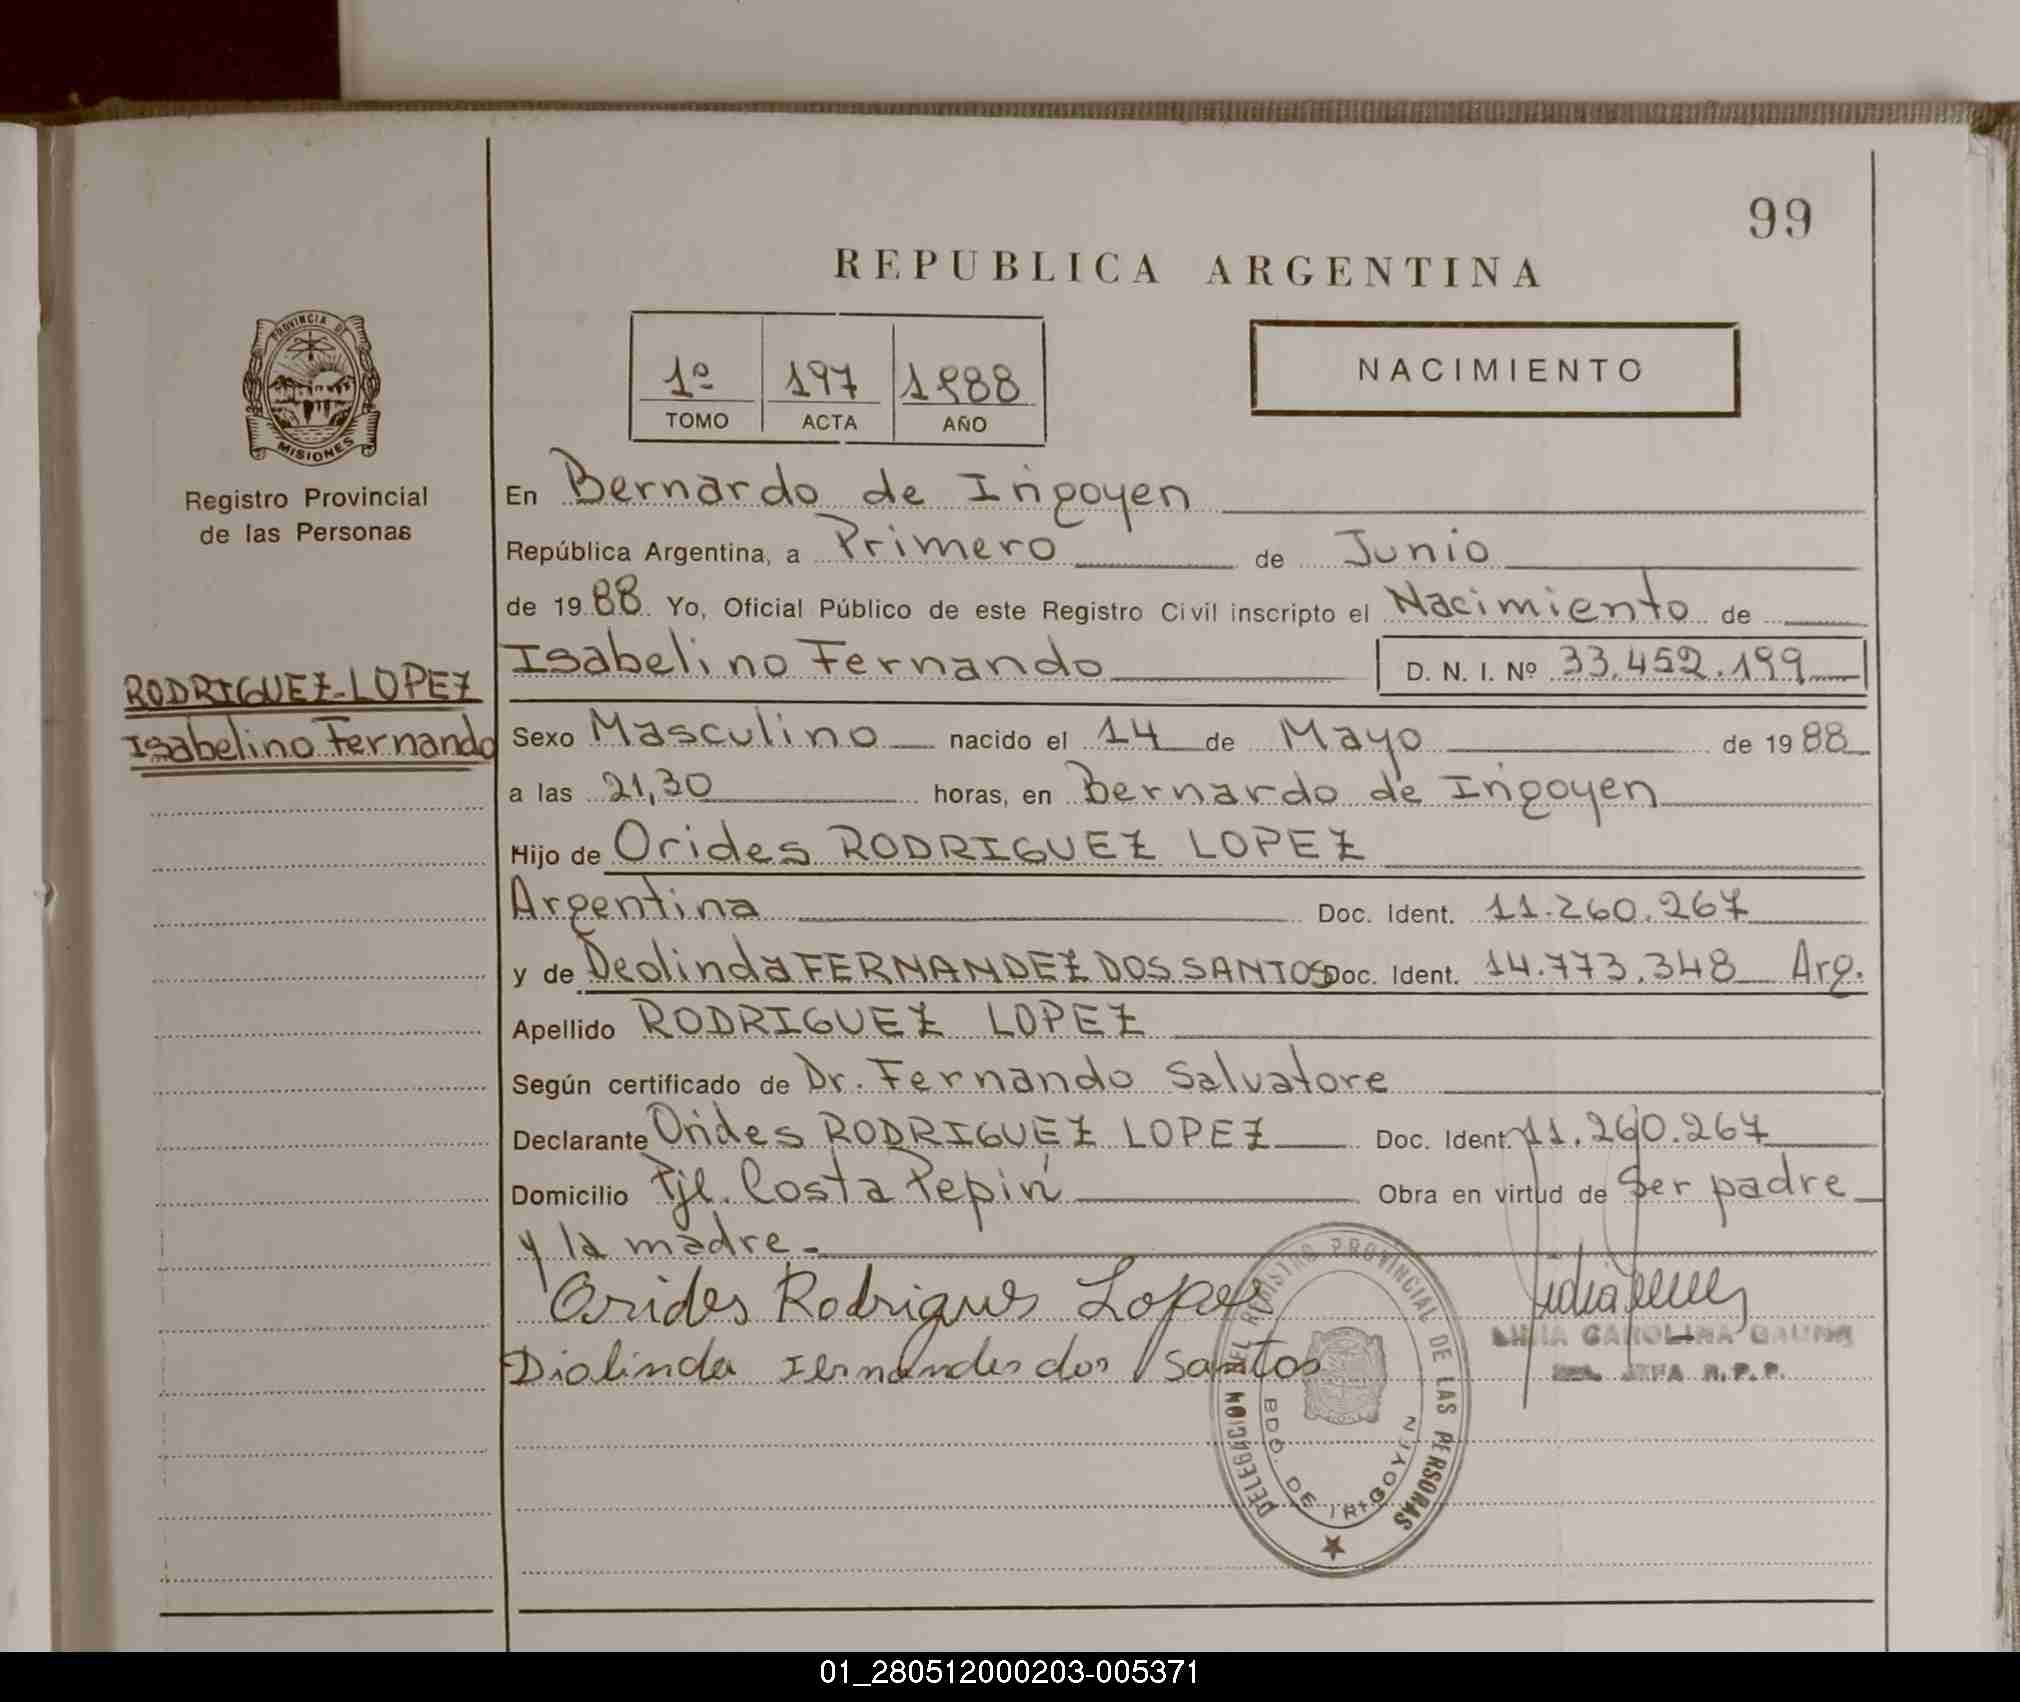 99
REPUBLICA ARGENTINA
1º 197 1988
TOMO ACTA AÑO
NACIMIENTO
PROVINCIA DE
MISIONES
Registro Provincial
de las Personas
RODRIGUEZ-LOPEZ
Isabelino Fernando
En Bernardo de Irigoyen
República Argentina, a Primero de Junio
de 1988 Yo, Oficial Público de este Registro Civil inscripto el Nacimiento de
Isabelino Fernando D. N. I. Nº 33.452.199
Sexo Masculino nacido el 14 de Mayo de 1988
a las 21,30 horas, en Bernardo de Irigoyen
Hijo de Orides RODRIGUEZ LOPEZ
Argentina Doc. Ident. 11.260.267
y de Deolinda FERNANDEZ DOS SANTOS Doc. Ident. 14.773.348 Arg.
Apellido RODRIGUEZ LOPEZ
Según certificado de Dr. Fernando Salvatore
Declarante Orides RODRIGUEZ LOPEZ Doc. Ident. 11.260.267
Domicilio Pje. Costa Pepirí Obra en virtud de Ser padre
y la madre.
Orides Rodrigues Lopes
Diolinda Fernandes dos Santos
CAROLINA
JEFA R.P.P.
DELEGACION DEL REGISTRO PROVINCIAL DE LAS PERSONAS
BDO. DE IRIGOYEN
01_280512000203-005371